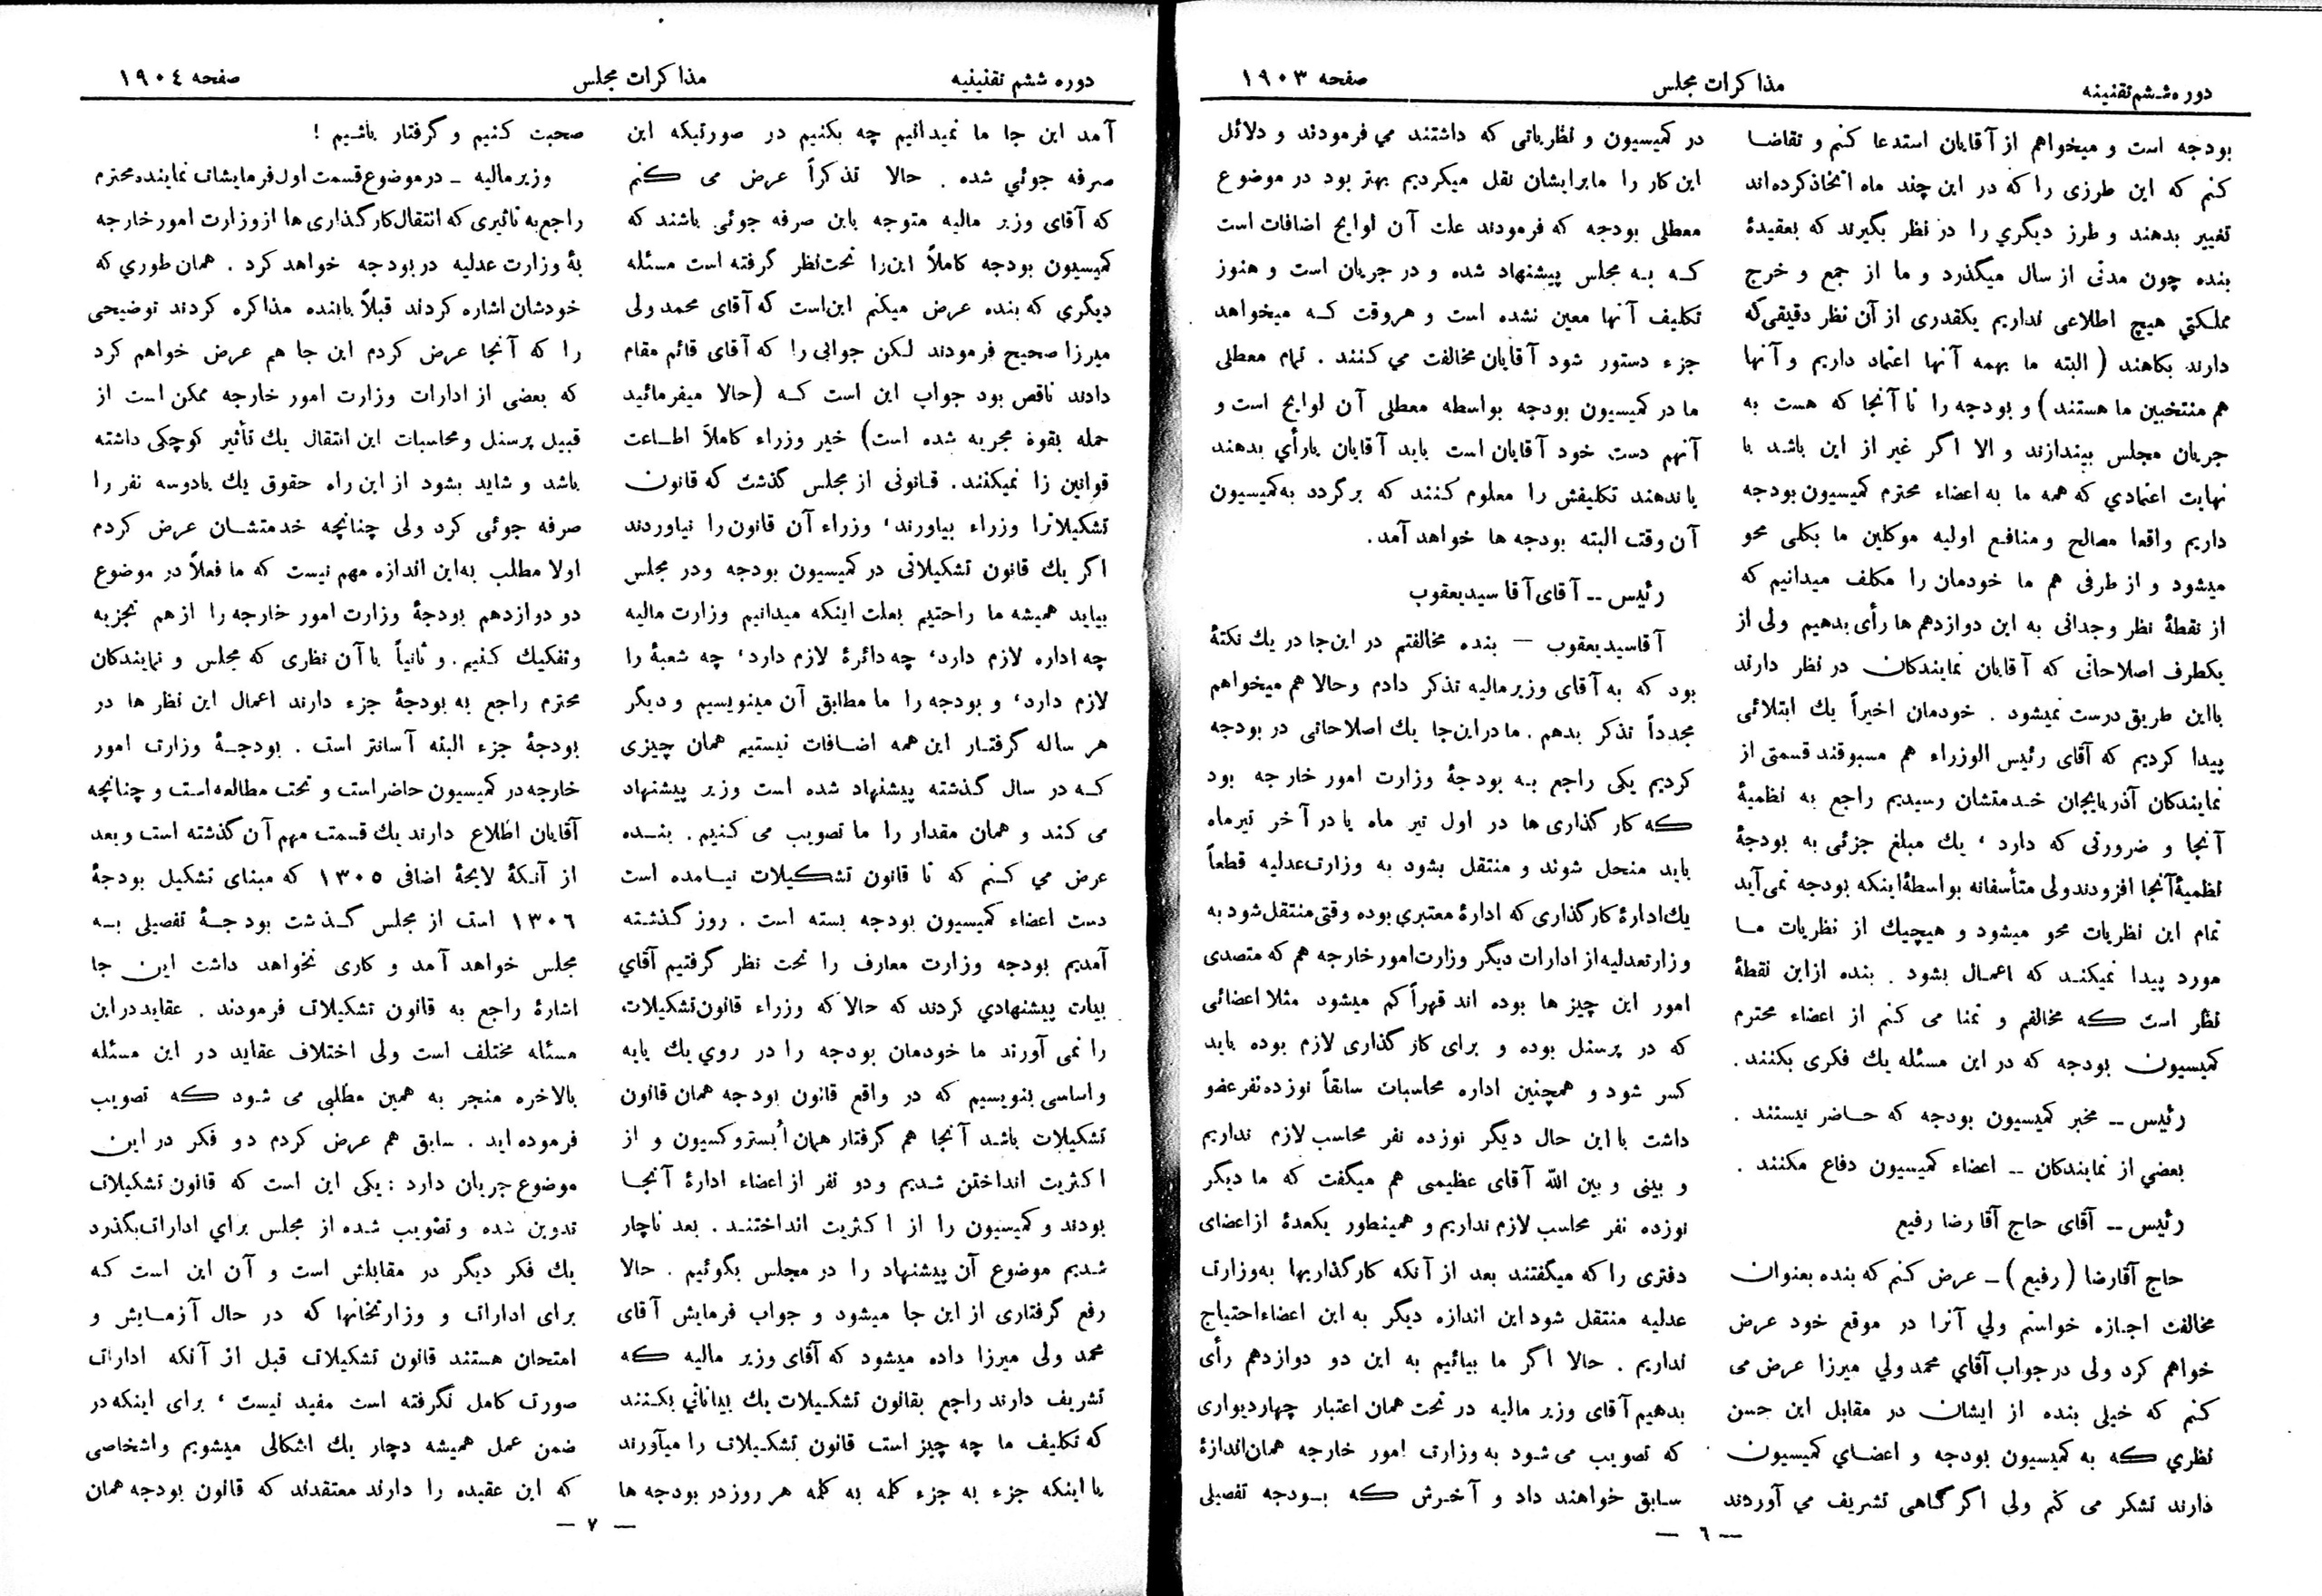 دوره ششم تقنینه
مذاکرات مجلس
صفحه ۱۹۰۳
بودجه است و میخواهم از آقایان استدعا کنم و تقاضا
کنم که این طرزی را که در این چند ماه اتخاذ کرده‌اند
تغییر بدهند و طرز دیگري را در نظر بگیرند که بعقیدهٔ
بنده چون مدتی از سال میگذرد و ما از جمع و خرج
مملکتي هیچ اطلاعی نداریم یکقدری از آن نظر دقیقی که
دارند بکاهند ( البته ما بهمه آنها اعتماد داریم و آنها
هم منتخبین ما هستند ) و بودجه را تا آنجا که هست به
جریان مجلس بیندازند و الا اگر غیر از این باشد با
نهایت اعتمادي که همه ما به اعضاء محترم کمیسیون بودجه
داریم واقعا مصالح و منافع اولیه موکلین ما بکلی محو
میشود و از طرفی هم ما خودمان را مکلف میدانیم که
از نقطهٔ نظر وجدانی به این دوازدهم ها رأی بدهیم ولی از
یکطرف اصلاحاتی که آقایان نمایندکان در نظر دارند
بااین طریق درست نمیشود . خودمان اخیراً یك ابتلائی
پیدا کردیم که آقای رئیس الوزراء هم مسبوقند قسمتی از
نمایندکان آذربایجان خدمتشان رسیدیم راجع به نظمیهٔ
آنجا و ضرورتی که دارد ، یك مبلغ جزئی به بودجهٔ
نظمیهٔ آنجا افزودند ولی متأسفانه بواسطهٔ اینکه بودجه نمی‌آید
تمام این نظریات محو میشود و هیچیك از نظریات ما
مورد پیدا نمیکند که اعمال بشود . بنده ازاین نقطهٔ
نظر است که مخالفم و تمنا می کنم از اعضاء محترم
کمیسیون بودجه که در این مسئله یك فکری بکنند .
رئیس -- مخبر کمیسیون بودجه که حاضر نیستند .
بعضي از نمایندکان -- اعضاء کمیسیون دفاع مکنند .
رئیس -- آقای حاج آقا رضا رفیع
حاج آقارضا ( رفیع ) - عرض کنم که بنده بعنوان
مخالفت اجازه خواستم ولي آنرا در موقع خود عرض
خواهم کرد ولی در جواب آقاي محمد ولي میرزا عرض می
کنم که خیلی بنده از ایشان در مقابل این حسن
نظري که به کمیسیون بودجه و اعضاي کمیسیون
دارند تشکر می کنم ولی اگر گاهی تشریف مي آوردند
در کمیسیون و نظریاتی که داشتند مي فرمودند و دلائل
این کار را مابرایشان نقل میکردیم بهتر بود در موضوع
معطلی بودجه که فرمودند علت آن لوایح اضافات است
که به مجلس پیشنهاد شده و در جریان است و هنوز
تکلیف آنها معین نشده است و هروقت که میخواهد
جزء دستور شود آقایان مخالفت مي کنند . تمام معطلی
ما در کمیسیون بودجه بواسطه معطلی آن لوایح است و
آنهم دست خود آقایان است باید آقایان یارأي بدهند
یا ندهند تکلیفش را معلوم کنند که برگردد به‌کمیسیون
آن وقت البته بودجه ها خواهد آمد.
رئیس -- آقای آقا سیدیعقوب
آقاسیدیعقوب — بنده مخالفتم در این‌جا در یك نکتهٔ
بود که به آقای وزیرمالیه تذکر دادم و حالا هم میخواهم
مجدداً تذکر بدهم . ما دراین‌جا یك اصلاحاتی در بودجه
کردیم یکی راجع به بودجهٔ وزارت امور خارجه بود
که کار گذاری ها در اول تیر ماه یا در آخر تیرماه
باید منحل شوند و منتقل بشود به وزارت‌عدلیه قطعاً
یك‌ادارهٔ کارگذاری که ادارهٔ معتبری بوده وقتی منتقل شود به
وزارتعدلیه از ادارات دیگر وزارت‌امور خارجه هم که متصدی
امور این چیز ها بوده اند قهراً کم میشود مثلا اعضائی
که در پرسنل بوده و برای کار گذاری لازم بوده باید
کسر شود و همچنین اداره محاسبات سابقاً نوزده نفر عضو
داشت با این حال دیگر نوزده نفر محاسب لازم نداریم
و بینی و بین الله آقای عظیمی هم میگفت که ما دیگر
نوزده نفر محاسب لازم نداریم و همینطور یکعدهٔ ازاعضای
دفتری را که میگفتند بعد از آنکه کارگذاریها به‌وزارت
عدلیه منتقل شود این اندازه دیگر به این اعضاءاحتیاج
نداریم . حالا اگر ما بیائیم به این دو دوازدهم رأی
بدهیم آقای وزیر مالیه در تحت همان اعتبار چهاردیواری
که تصویب می شود به وزارت امور خارجه همان‌اندازهٔ
سابق خواهند داد و آخرش که بودجه تفصیلی
— ٦ —
دوره ششم تقنینیه
مذاکرات مجلس
صفحه ۱۹۰٤
آمد این جا ما نمیدانیم چه بکنیم در صورتیکه این
صرفه جوئي شده . حالا تذکراً عرض می کنم
که آقای وزیر مالیه متوجه باین صرفه جوئی باشند که
کمیسیون بودجه کاملاً این‌را تحت‌نظر گرفته است مسئله
دیگري که بنده عرض میکنم این‌است که آقای محمد ولی
میرزا صحیح فرمودند لکن جوابی را که آقای قائم مقام
دادند ناقص بود جواب این است که (حالا میفرمائید
حمله بقوهٔ مجریه شده است) خیر وزراء کاملاً اطاعت
قوانین را نمیکنند. قانونی از مجلس گذشت که قانون
تشکیلاترا وزراء بیاورند، وزراء آن قانون را نیاوردند
اگر یك قانون تشکیلاتی در کمیسیون بودجه ودر مجلس
بیاید همیشه ما راحتیم بعلت اینکه میدانیم وزارت مالیه
چه اداره لازم دارد، چه دائرهٔ لازم دارد، چه شعبهٔ را
لازم دارد، و بودجه را ما مطابق آن مینویسیم و دیگر
هر ساله گرفتار این همه اضافات نیستیم همان چیزی
که در سال گذشته پیشنهاد شده است وزیر پیشنهاد
می کند و همان مقدار را ما تصویب می کنیم . بنده
عرض مي کنم که تا قانون تشکیلات نیامده است
دست اعضاء کمیسیون بودجه بسته است . روز گذشته
آمدیم بودجه وزارت معارف را تحت نظر گرفتیم آقاي
بیات پیشنهادي کردند که حالا که وزراء قانون تشکیلات
را نمی آورند ما خودمان بودجه را در روي یك پایه
و اساسی بنویسیم که در واقع قانون بودجه همان قانون
تشکیلات باشد آنجا هم گرفتار همان أبستروکسیون و از
اکثریت انداختن شدیم و دو نفر از اعضاء ادارهٔ آنجا
بودند و کمیسیون را از اکثریت انداختند . بعد ناچار
شدیم موضوع آن پیشنهاد را در مجلس بگوئیم . حالا
رفع گرفتاری از این جا میشود و جواب فرمایش آقای
محمد ولی میرزا داده میشود که آقای وزیر مالیه که
تشریف دارند راجع بقانون تشکیلات یك بیاناتي بکنند
که تکلیف ما چه چیز است قانون تشکیلات را میآورند
یا اینکه جزء به جزء کلمه به کلمه هر روز در بودجه ها
صحبت کنیم و گرفتار باشیم !
وزیر مالیه - در موضوع قسمت اول فرمایشات نماینده محترم
راجع به تاثیری که انتقال کارگذاری ها از وزارت امور خارجه
بهٔ وزارت عدلیه در بودجه خواهد کرد . همان طوري که
خودشان اشاره کردند قبلاً بابنده مذاکره کردند توضیحی
را که آنجا عرض کردم این جا هم عرض خواهم کرد
که بعضی از ادارات وزارت امور خارجه ممکن است از
قبیل پرسنل و محاسبات این انتقال یك تأثیر کوچکی داشته
باشد و شاید بشود از این راه حقوق یك یادوسه نفر را
صرفه جوئی کرد ولی چنانچه خدمتشان عرض کردم
اولا مطلب به‌این اندازه مهم نیست که ما فعلاً در موضوع
دو دوازدهم بودجهٔ وزارت امور خارجه را از هم تجزیه
و تفکیك کنیم. و ثانیاً با آن نظری که مجلس و نمایندکان
محترم راجع به بودجهٔ جزء دارند اعمال این نظر ها در
بودجهٔ جزء البته آسانتر است . بودجهٔ وزارت امور
خارجه در کمیسیون حاضر است و تحت مطالعه است و چنانچه
آقایان اطلاع دارند یك قسمت مهم آن گذشته است و بعد
از آنکهٔ لایحهٔ اضافی ۱۳۰٥ که مبنای تشکیل بودجهٔ
۱۳۰٦ است از مجلس گذشت بودجهٔ تفصیلی به
مجلس خواهد آمد و کاری نخواهد داشت این جا
اشارهٔ راجع به قانون تشکیلات فرمودند . عقاید در این
مسئله مختلف است ولی اختلاف عقاید در این مسئله
بالاخره منجر به همین مطلبی می شود که تصویب
فرموده اید . سابق هم عرض کردم دو فکر در این
موضوع جریان دارد : یکی این است که قانون تشکیلات
تدوین شده و تصویب شده از مجلس براي ادارات‌بگذرد
یك فکر دیگر در مقابلش است و آن این است که
برای ادارات و وزارتخانها که در حال آزمایش و
امتحان هستند قانون تشکیلات قبل از آنکه ادارات
صورت کامل نگرفته است مفید نیست ، برای اینکه در
ضمن عمل همیشه دچار یك اشکالی میشویم و اشخاصی
که این عقیده را دارند معتقدند که قانون بودجه همان
— ۷ —